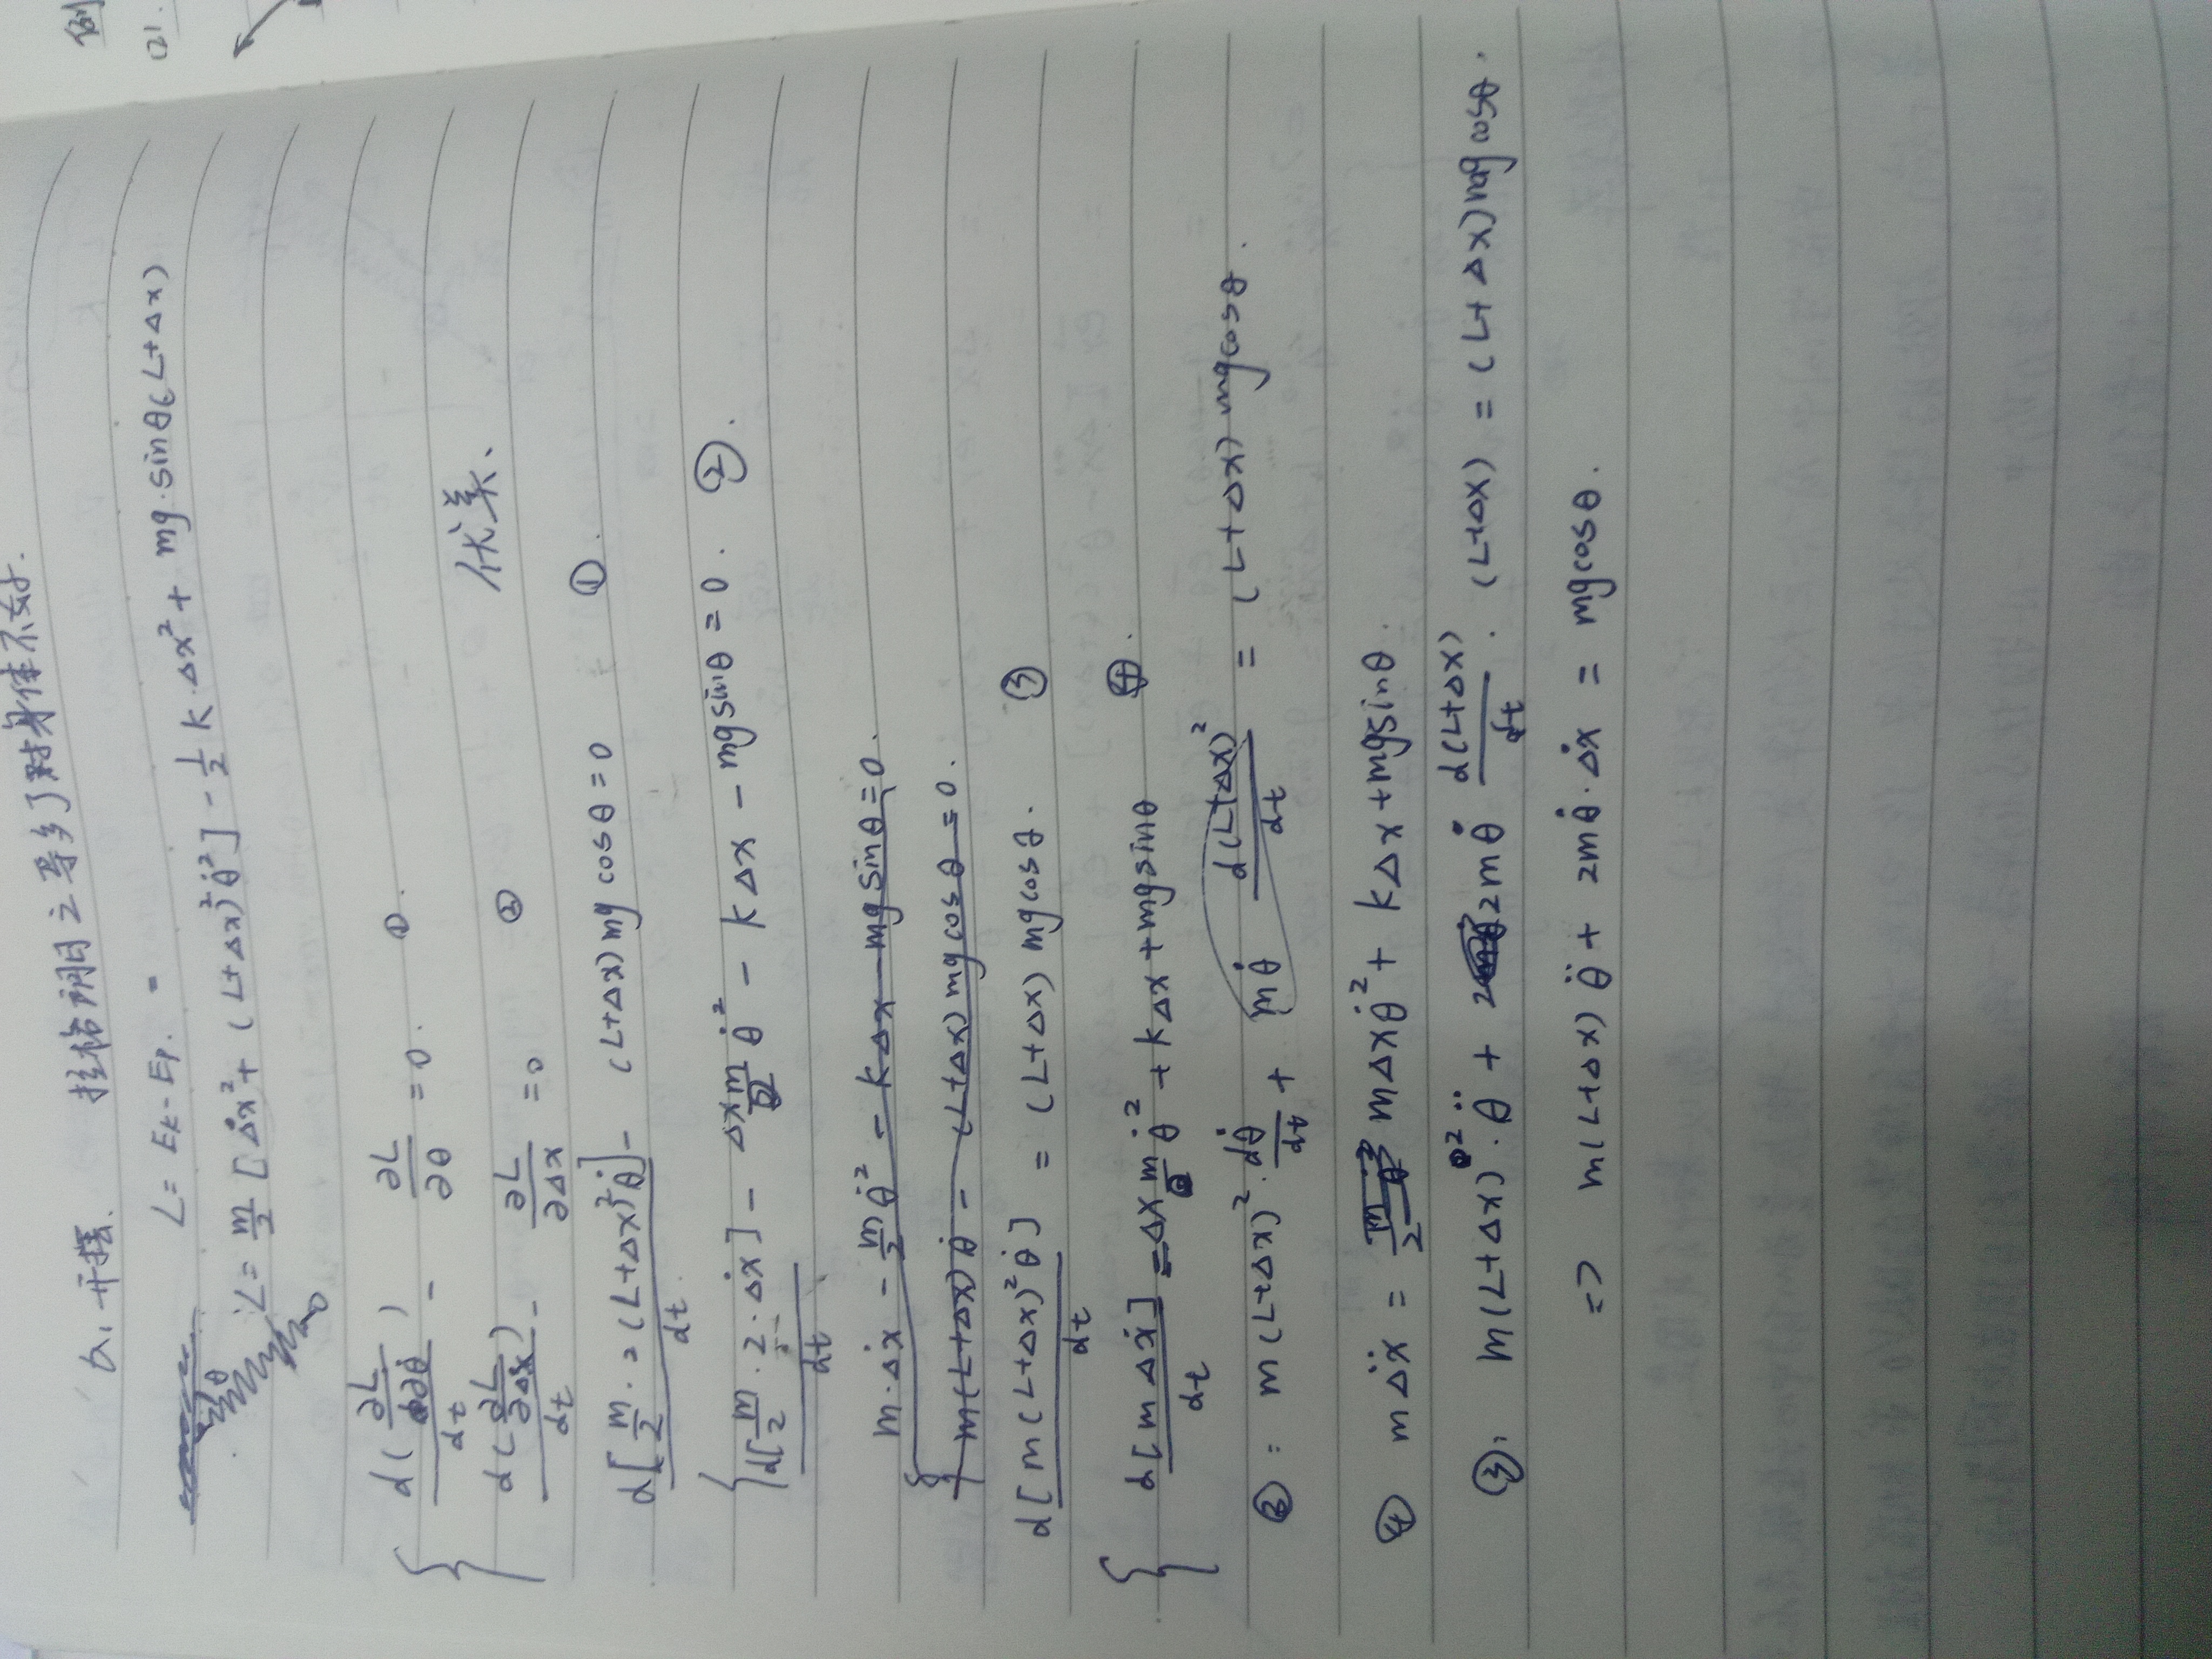 例
(2).
拉格朗日之导多了对身体不好.
L = Ek - Ep. =
L = m/2 [Δẋ² + (L+Δx)²θ̇²] - 1/2 k·Δx² + mg·sinθ(L+Δx)
θ
{ d(∂L/∂θ̇)/dt - ∂L/∂θ = 0. ①.
d(∂L/∂Δẋ)/dt - ∂L/∂Δx = 0 ②
优美、
d[m/2·2(L+Δx)²θ̇]/dt - (L+Δx)mg cosθ = 0 ①.
{ d[m/2·2·Δẋ]/dt - Δxmθ̇² - kΔx - mgsinθ = 0. ②.
{ m·Δẋ - m/2 θ̇² - kΔx - mgsinθ = 0.
m(L+Δx)θ̇ - (L+Δx)mgcosθ = 0.
d[m(L+Δx)²θ̇]/dt = (L+Δx)mgcosθ. ③
{ d[mΔẋ]/dt = Δxmθ̇² + kΔx + mgsinθ ④.
③: m(L+Δx)²·dθ̇/dt + mθ̇ d(L+Δx)²/dt = (L+Δx)mgcosθ.
④ mΔẍ = mΔxθ̇² + kΔx + mgsinθ.
③, m(L+Δx)²·θ̈ + 2mθ̇ d(L+Δx)/dt·(L+Δx) = (L+Δx)mgcosθ.
=> m(L+Δx)θ̈ + 2mθ̇·Δẋ = mgcosθ.